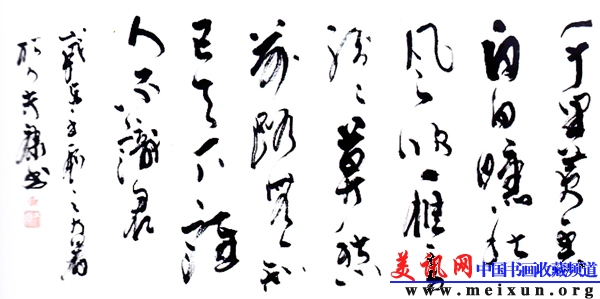 千里黄云
白日曛北
风吹雁雪
纷纷莫愁
前路無知
己天下谁
人不識君
美讯网 中国书画收藏频道
www.meixun.org